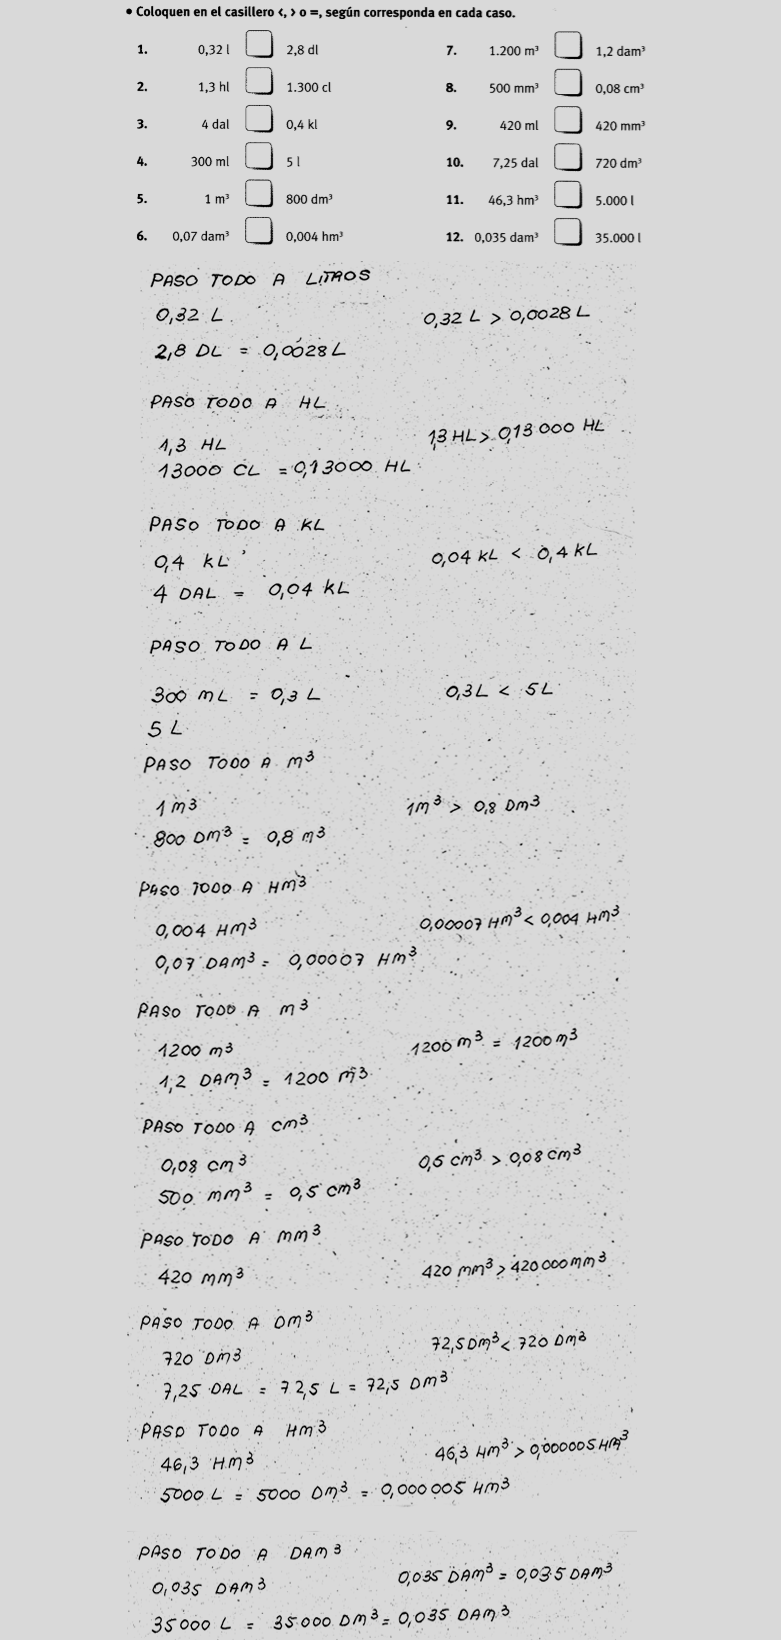 • Coloquen en el casillero <, > o =, según corresponda en cada caso.
1. 0,32 l 2,8 dl
2. 1,3 hl 1.300 cl
3. 4 dal 0,4 kl
4. 300 ml 5 l
5. 1 m³ 800 dm³
6. 0,07 dam³ 0,004 hm³
7. 1.200 m³ 1,2 dam³
8. 500 mm³ 0,08 cm³
9. 420 ml 420 mm³
10. 7,25 dal 720 dm³
11. 46,3 hm³ 5.000 l
12. 0,035 dam³ 35.000 l
PASO TODO A LITROS
0,32 L 0,32 L > 0,0028 L
2,8 DL = 0,0028 L
PASO TODO A HL
1,3 HL 1,3 HL > 0,13000 HL
13000 CL = 0,13000 HL
PASO TODO A KL
0,4 KL 0,04 KL < 0,4 KL
4 DAL = 0,04 KL
PASO TODO A L
300 mL = 0,3 L 0,3 L < 5 L
5 L
PASO TODO A m³
1 m³ 1m³ > 0,8 Dm³
800 Dm³ = 0,8 m³
PASO TODO A Hm³
0,004 Hm³ 0,00007 Hm³ < 0,004 Hm³
0,07 DAm³ = 0,00007 Hm³
PASO TODO A m³
1200 m³ 1200 m³ = 1200 m³
1,2 DAm³ = 1200 m³
PASO TODO A cm³
0,08 cm³ 0,5 cm³ > 0,08 cm³
500 mm³ = 0,5 cm³
PASO TODO A mm³
420 mm³ 420 mm³ > 420000 mm³
PASO TODO A Dm³
720 Dm³ 72,5 Dm³ < 720 Dm³
7,25 DAL = 72,5 L = 72,5 Dm³
PASO TODO A Hm³
46,3 Hm³ 46,3 Hm³ > 0,000005 Hm³
5000 L = 5000 Dm³ = 0,000005 Hm³
PASO TODO A DAm³
0,035 DAm³ 0,035 DAm³ = 0,035 DAm³
35000 L = 35000 Dm³ = 0,035 DAm³